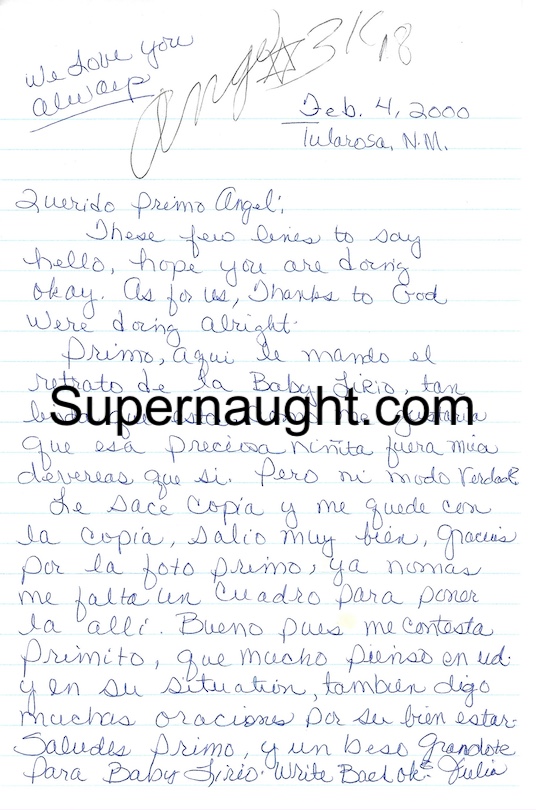 We Love you
always
Angel 3K18
Feb. 4, 2000
Tularosa, N.M.
Querido primo Angel:
These few lines to say
hello, hope you are doing
okay. As for us, Thanks to God
were doing alright.
Primo, aqui le mando el
retrato de la Baby Lirio, tan
Supernaught.com
que esa preciosa niñita fuera mia
devereas que si. Pero ni modo verdad?
Le sace copia y me quede con
la copia, salio muy bien, gracias
por la foto primo, ya nomas
me falta un cuadro para poner
la alli. Bueno pues me contesta
primito, que mucho pienso en ud.
y en su situation, tambien digo
muchas oraciones por su bien estar.
Saludes primo, y un beso grandote
para Baby Lirio. Write Back ok? Julia